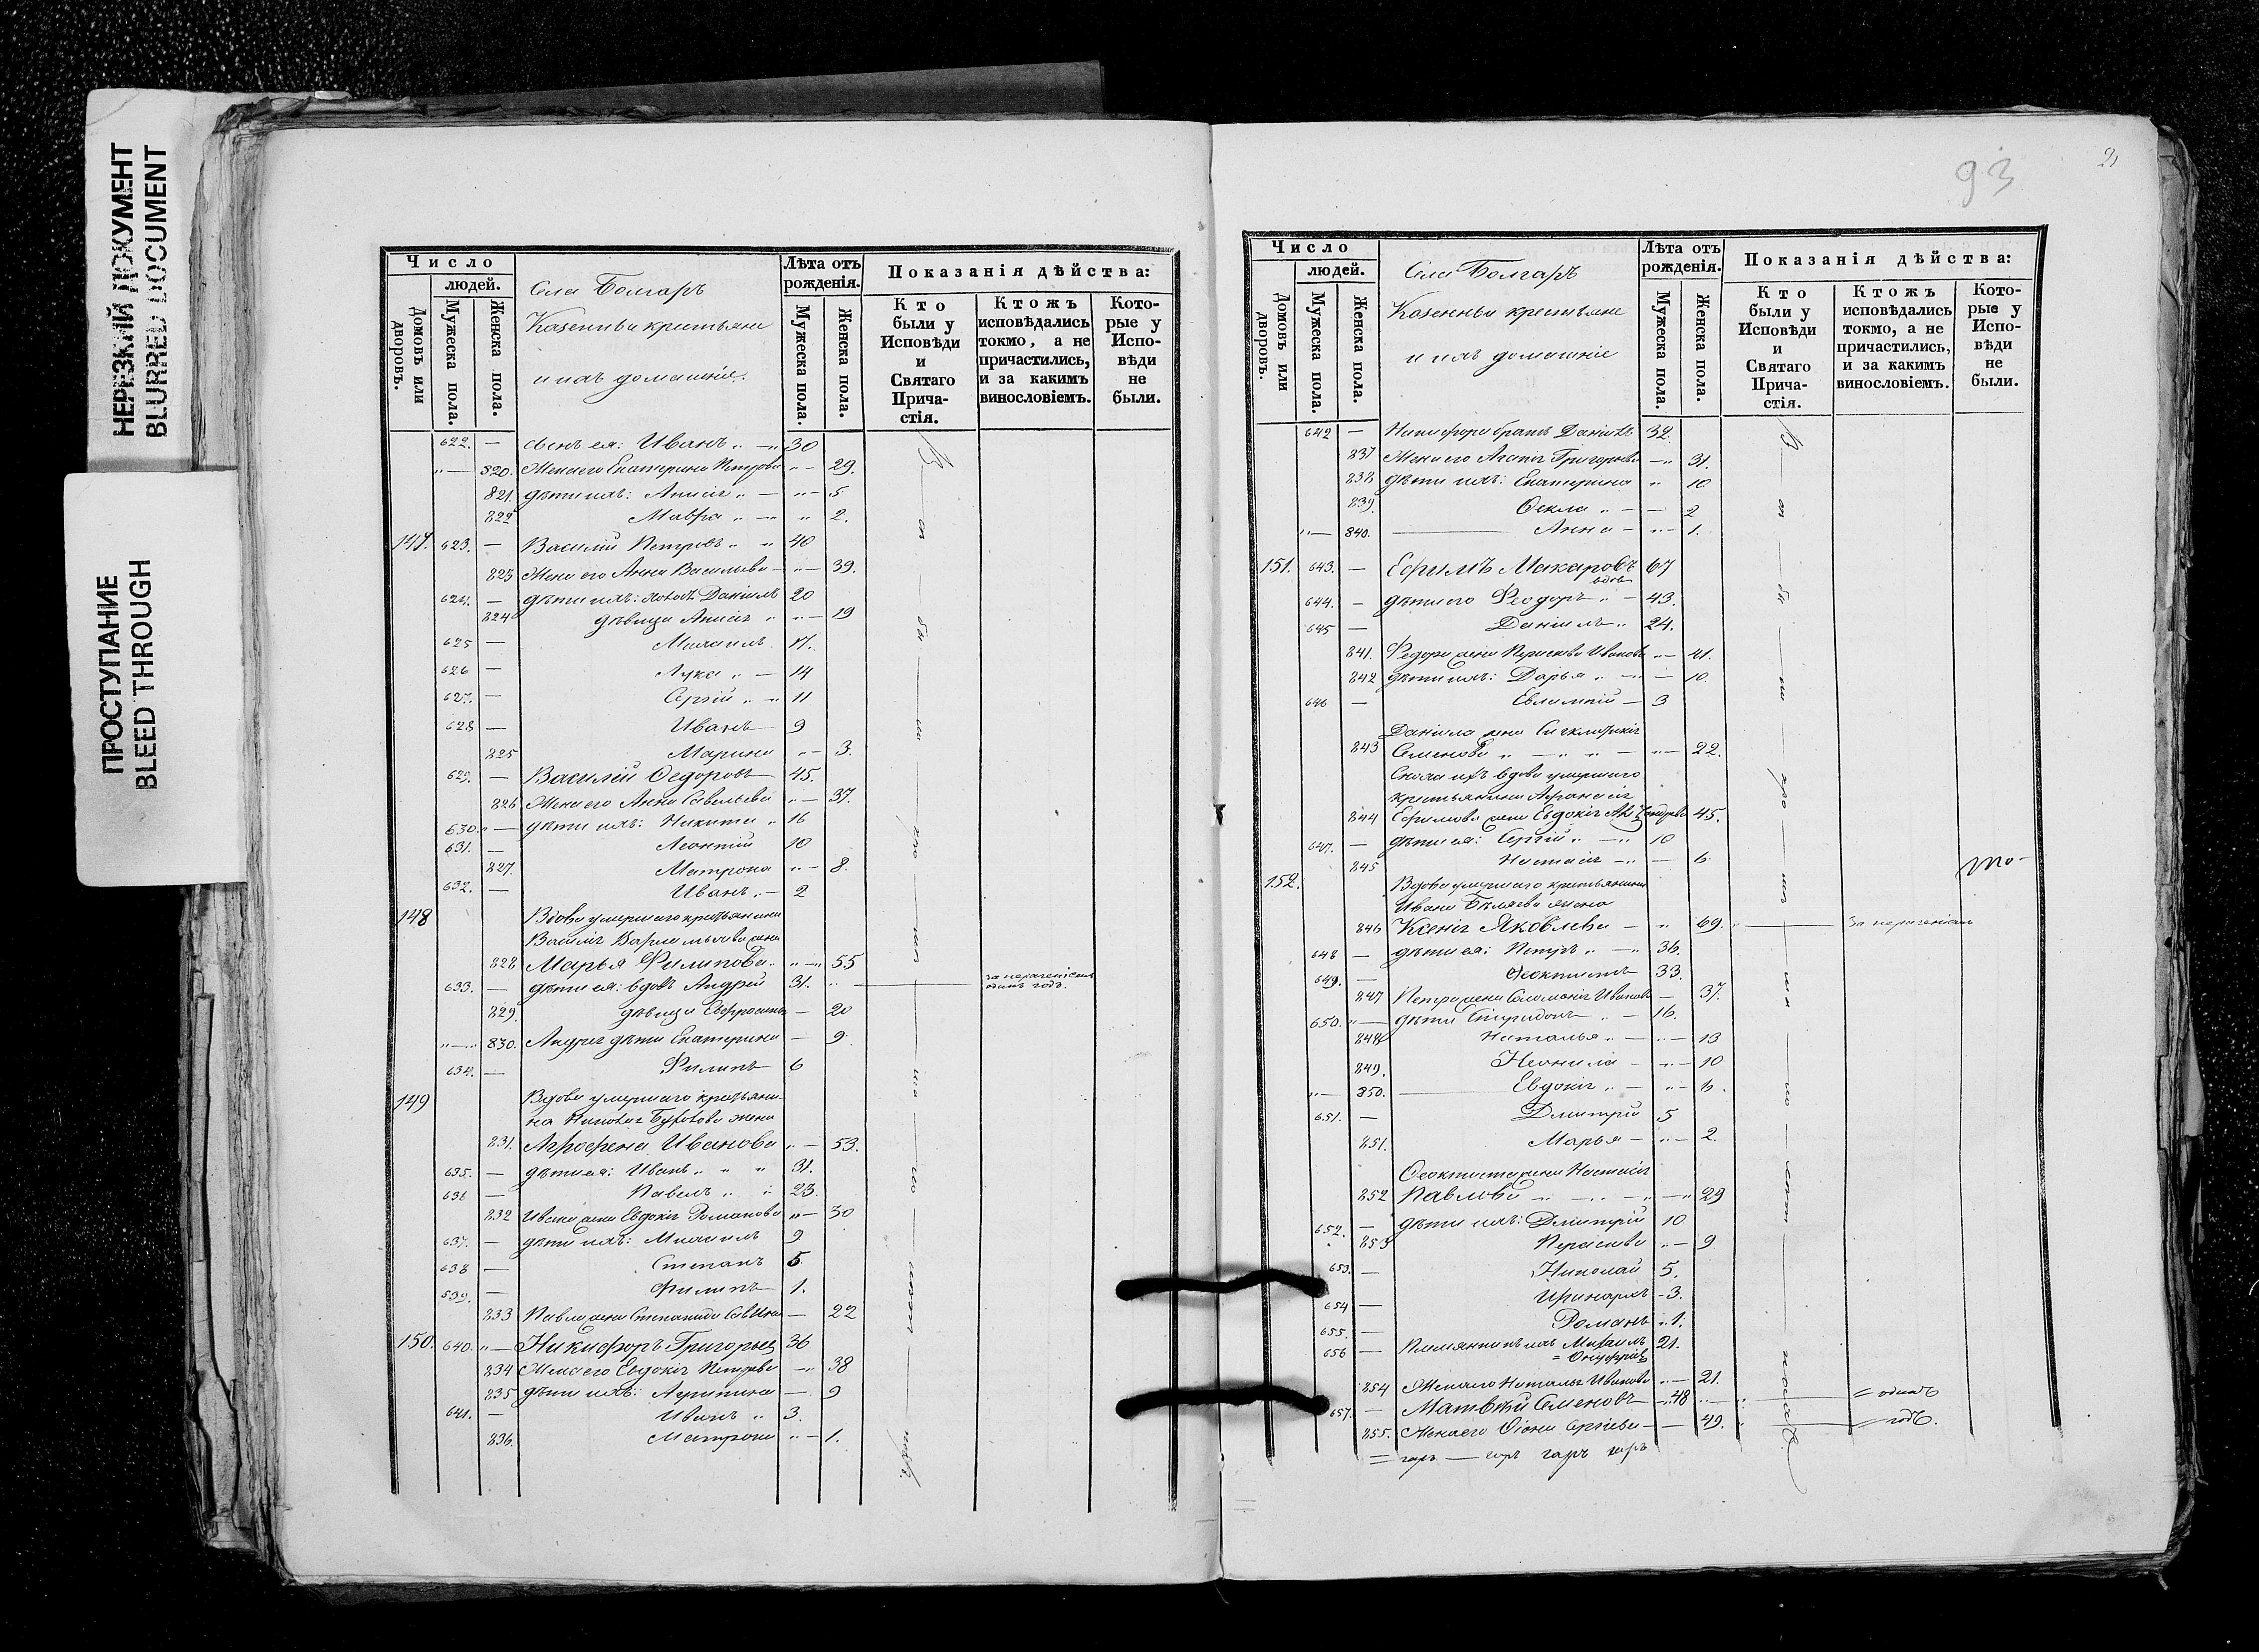 НЕРЕЗКИЙ ДОКУМЕНТ
BLURRED DOCUMENT
ПРОСТУПАНИЕ
BLEED THROUGH
Число
людей.
Домовъ или дворовъ.
Мужеска пола.
Женска пола.
Села Болгаръ
Казенныи крестьяне
и ихъ домашніе.
Лѣта отъ рожденія.
Мужеска пола.
Женска пола.
Показанія дѣйства:
Кто были у Исповѣди и Святаго Причастія.
Ктожъ исповѣдались токмо, а не причастились, и за какимъ винословіемъ.
Которые у Исповѣди не были.
622. — сынъ ея: Иванъ 30
820. Жена его Екатерина Петрова 29.
821. дѣти ихъ: Анисія 5
822 Мавра 2.
147. 623. — Василій Петровъ 40
823 Жена его Анна Васильева 39.
624. — дѣти ихъ: холост. Даніилъ 20
824 дѣвица Анисія 19
625 — Михаилъ 17.
626 — Лука 14
627. — Сергій 11
628 — Иванъ 9
825 Марина 3.
629. — Василій Ѳедоровъ 45.
826 Жена его Анна Савельева 37.
630. — дѣти ихъ: Никита 16
631. — Леонтій 10
827. Матрона 8.
632. — Иванъ 2
148 Вдова умершаго крестьянина
Василія жена
828 Марья Филипова 55
633. — дѣти ея: вдовъ Андрей 31. за нераченіемъ одинъ годъ.
829. дѣвица Евфросинья 20
830. Андрея дѣти Екатерина 9
634. — Филипъ 6
149 Вдова умершаго крестьяни-
на жена
831. Агрофена Иванова 53.
635. — дѣти ея: Иванъ 31.
636 — Павелъ 23.
832 Ивана жена Евдокія Романова 30
637. — дѣти ихъ: Михаилъ 9
638 — Степанъ 5
539. — Филипъ 1.
833 Павла жена Степанида Савина 22
150. 640. — Никифоръ Григорьев 36
834 Жена его Евдокія Петрова 38
835 дѣти ихъ: Агрипина 9
641. — Иванъ 3.
836. Матрона 1.
93
Число
людей.
Домовъ или дворовъ.
Мужеска пола.
Женска пола.
Села Болгаръ
Казенныи крестьяне
и ихъ домашніе
Лѣта отъ рожденія.
Мужеска пола.
Женска пола.
Показанія дѣйства:
Кто были у Исповѣди и Святаго Причастія.
Ктожъ исповѣдались токмо, а не причастились, и за какимъ винословіемъ.
Которые у Исповѣди не были.
642 — Никифора братъ Даніилъ 32.
837 Жена его Агапія Григорьева 31.
838 дѣти ихъ: Екатерина 10
839. Ѳекла 2
840. Анна 1.
151. 643. — Ефимъ Макаровъ 67
вдовъ
644. — дѣти его Феодоръ 43.
645 — Даніилъ 24.
841. Федора жена Параскева Иванова 41.
842 дѣти ихъ: Дарья 10
646 — Евлампій 3
Даніила жена Сигклитикія
843 Семенова 22.
Сноха ихъ вдова умершаго
крестьянина Афанасія
844 Ефимова жена Евдокія 45.
647. — дѣти ея: Сергій 10
845 Настасія 6
152. Вдова умершаго крестьянина
Ивана Бѣляева жена
846 Ксенія Яковлева 69. за нераченіемъ
648 — дѣти ея: Петръ 36.
649. — Ѳеоктистъ 33.
847 Петра жена Соломонія Иванова 37.
650. — дѣти Спиридонъ 16.
848 Наталья 13
849. Неонила 10
850. Евдокія 6.
651. — Дмитрій 5
851. Марья 2.
Ѳеоктиста жена Настасія
852 Павлова 29
652. — дѣти ихъ: Дмитрій 10
853 Параскева 9
653. — Николай 5.
654 — Иринархъ 3.
655. — Романъ 1.
656 — Племянникъ ихъ Михаилъ 21.
Онуфріевъ
854 Жена его Наталья Иванова 21.
657. — Матвѣй Семеновъ 48 одинъ
855. Жена его Ѳіона Сергіева 49. годъ.